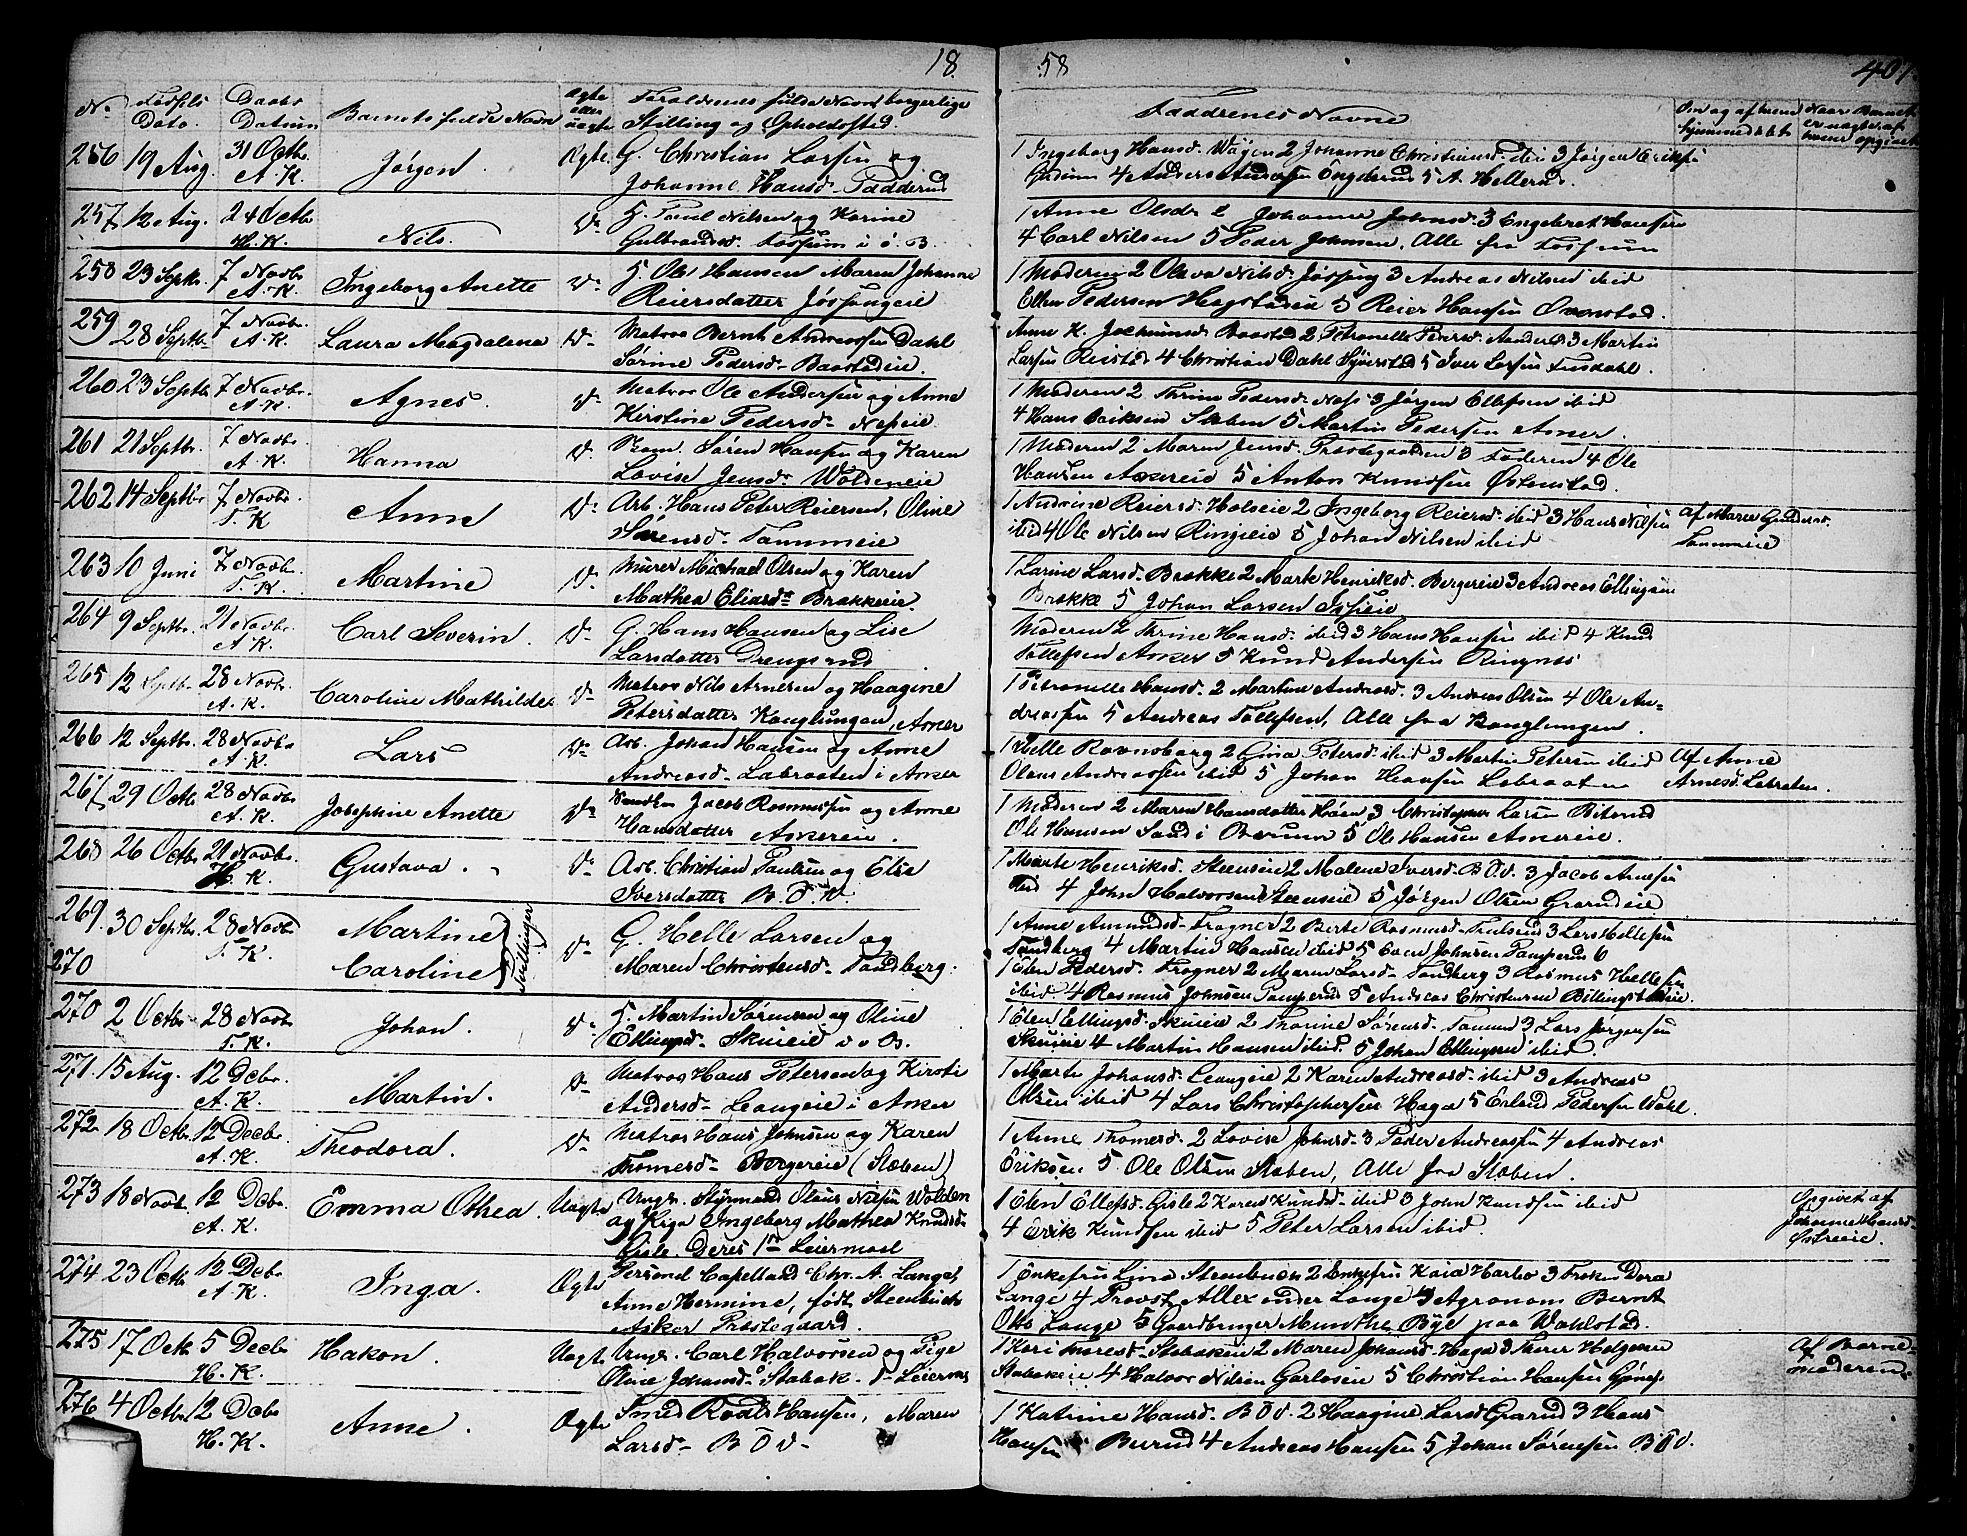 18
58
407
No.
Fødsels
Dato.
Daabs
Datum
Barnets fulde Navn
ægte
eller
uægte
Forældrenes fulde Navne borgerlige
Stilling og Opholdssted.
Faddrenes Navne
Om og af hvem
hjemmedøbt
Naar Barnet
er uægte, af
hvem opgivet
256 19 Aug. 31 Octbr. A. K. Jørgen. Ægte. G. Christian Larsen og
Johanne Hansd. Tadderud
1 Ingeborg Hansd. Wøyen 2 Johanne Christiansd. ibid 3 Jørgen Eriksen
4 Anders Andersen Engelsrud 5 A. Hellerud.
257 12 Aug. 24 Octbr. H. K. Nils. Do G. Poul Nilsen og Karine
Gulbrandsd. Fossum i Ø. B.
1 Anne Olsdr 2 Johanne Johnsd. 3 Engebret Hansen
4 Carl Nilsen 5 Peder Johnsen. Alle fra Fossum
258 23 Septbr. 7 Novbr. A. K. Ingeborg Anette Do G. Ole Hansen Maren Johanne
Reiersdatter Jøssongeie
1 Moderen 2 Olava Nilsd. Jøssong 3 Andreas Nilsen ibid
Ellen Pedersen Hogstadeie 5 Reier Hansen Ovenstad.
259 28 Septbr. 7 Novbr. A. K. Laura Magdalena Do Matros Bernt Andreassen Dahl
Sørine Pedersd. Baastadeie.
Anne K. Jochumsd. Baastad 2 Petronelle Pedersd. 3 Martin
Larsen Reistad 4 Christian Dahl 5 Iver Larsen Tusdahl.
260 23 Septbr. 7 Novbr. A. K. Agnes. Do Matros Ole Andersen og Anne
Kirstine Pedersd. Næseie.
1 Moderen 2 Thrine Pedersd. Næs 3 Jørgen Ellefsen ibid
4 Hans Eriksen Staben 5 Martin Pedersen Asker.
261 21 Septbr. 7 Novbr. A. K. Hanna Do Søren Hansen og Karen
Lovise Jensd. Woldeneie
1 Moderen 2 Maren Jensd. Præstegaarden 3 Faderen 4 Ole
Hansen Askereie 5 Anton Knudsen Østenstad.
262 14 Septbr. 7 Novbr. T. K. Anne Do Arb. Hans Peter Reiersen, Oline
Sørensd. Tanumeie
1 Andrine Reiersd. Holseie 2 Ingeborg Reiersd. ibid 3 Hans Nilsen
ibid 4 Ole Nilsen Ringieie 5 Johan Nilsen ibid
af Maren Gundersd.
Tanumeie
263 10 Juni 7 Novbr. T. K. Martine Do Murer Michael Olsen og Karen
Mathea Eliasd. Brækkeeie.
1 Larine Larsd. Brække 2 Marte Henriksd. Bergereie 3 Andreas Ellingsen
Brække 5 Johan Larsen
264 9 Septbr. 21 Novbr. A. K. Carl Severin. Do G. Hans Hansen og Lise
Larsdatter Drengsrud
Moderen 2 Thrine Hansd. ibid 3 Hans Hansen ibid 4 Knud
Tollefsen Asker 5 Knud Andersen Ringnæs
265 12 Septbr. 28 Novbr. A. K. Caroline Mathilde Do Matros Nils Arnesen og Haagine
Petersdatter Konglungen, Asker
1 Petronelle Hansd. 2 Martine Andreasd. 3 Andreas Olsen 4 Ole An-
dreassen 5 Andreas Tollefsen, Alle fra Konglungen.
266 12 Septbr. 28 Novbr. A. K. Lars Do Arb. Johan Hansen og Anne
Andreasd. Labraaten i Asker
1 Helle Ravnsborg 2 Lina Petersd. ibid 3 Martin Petersen ibid
Olaus Andreassen ibid 5 Johan Hansen Lebraaten
Af Anne
Arnesd. Lebraten.
267 29 Octbr. 28 Novbr. A. K. Josephine Anette Do Jacob Rasmussen og Anne
Hansdatter Askereie.
1 Moderen 2 Maren Hansdatter Høen 3 Christopher Larsen Bitrud
Ole Hansen Sand i Bærum 5 Ole Hansen Askereie.
268 26 Octbr. 21 Novbr. H. K. Gustava. Do Arb. Christian Paulsen og Elise
Iversdatter B. Ø. V.
1 Marte Henriksd. Steenseie 2 Malene Iversd. B.Ø.V. 3 Jacob Arnesen
ibid 4 John Halvorsen Steenseie 5 Jørgen Olsen Grændeie
269. 30 Septbr. 28 Novbr. T. K. Martine Do G. Helle Larsen og
270 Caroline Tvillinger Maren Christensd. Tandberg.
1 Anne Amundsd. Frogner 2 Berte Rasmusd. 3 Lars Hellesen
Tandberg 4 Martin Hansen ibid 5 Even Johnsen Pamperud 6
1 Elen Pedersd. Frogner 2 Maren Larsd. Tandberg 3 Rasmus Hellesen
ibid. 4 Rasmus Johnsen Pamperud 5 Andreas Christensen Billingstadeie.
270 2 Octbr. 28 Novbr. T. K. Johan. Do G. Martin Sørensen og Oline
Ellingsd. Skuieie v. v. B.
1 Elen Ellingsd. Skuieie 2 Thorine Sørensd. Tanum 3 Lars Jørgensen
Skuieie 4 Martin Hansen ibid. 5 Johan Ellingsen ibid.
271. 15 Aug. 12 Decbr. A. K. Martin. Do Matros Hans Petersen og Kirsti
Andersd. Leangeie i Asker
1 Marte Johansd. Leangeie 2 Karen Andreasd. ibid 3 Andreas
Olsen ibid 4 Lars Christophersen Haga 5 Erland Pedersen Wahl.
272 18 Octbr. 12 Decbr. A. K. Theodora. Do Matros Hans Johnsen og Karen
Thomesd. Bergereie (Stæben)
1 Anne Thomesd. 2 Lovise Johnsd. 3 Peder Andreassen 4 Andreas
Eriksen 5 Ole Olsen Stæben, Alle fra Stæben.
273 18 Novbr. 12 Decbr. A. K. Emma Othea. Uægte Ungk. Styrmand Olaus Nilsen Wolden
og Pige Ingeborg Mathea Knudsd.
Gisle. Deres 1ste Leiermaal
1 Elen Ellefsd. Gisle 2 Karen Knudsd. ibid 3 John Knudsen ibid
4 Erik Knudsen ibid 5 Peter Larsen ibid.
Opgivet af
Johanne Hansd.
Østreeie.
274 23 Octbr. 12 Decbr. A. K. Inga. Ægte Personel Capellan Chr. A. Lange,
Anne Hermine, født Steenbuch
Asker Præstegaard.
1 Enkefru Lina Steenbuch 2 Enkefru Kaia Harbo 3 Frøken Dora
Lange 4 Provst Alexander Lange 4 Agronom Bernt
Otto Lange 5 Gaardbruger Munthe Bye paa Wahlstad.
275 17 Octbr. 5 Decbr. H. K. Hakon. Uægte Ungk. Carl Halvorsen og Pige
Oline Johansd. Stabæk. Leierm.
1 Kari Stabækeie 2 Maren Johansd. Haga 3 Torer Holgersen
Stabækeie 4 Halvor Nilsen Garløseie 5 Christian Hansen
Af Barne-
moderen.
276 4 Octbr. 12 Decbr. H. K. Anne. Ægte Smed Roald Hansen, Maren
Larsd. B Ø V.
1 Katrine Hansd. B Ø V. 2 Haagine Larsd. Grorud 3 Hans
Hansen Burud 4 Andreas Hansen 5 Johan Sørensen B Ø V.